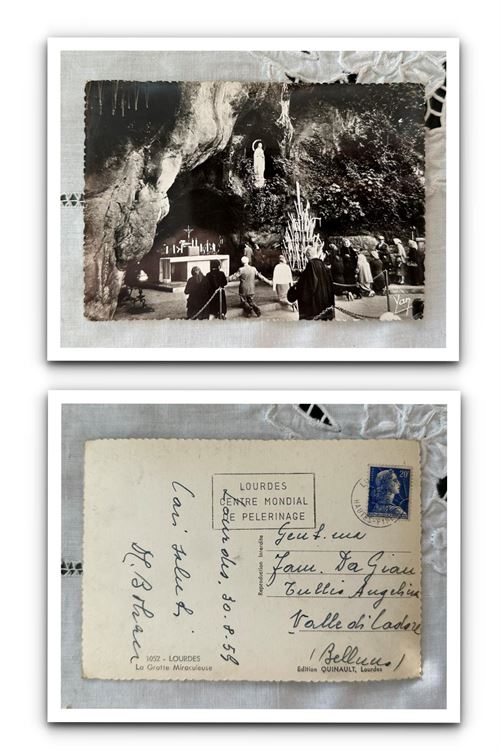 Yan
LOURDES
CENTRE MONDIAL
DE PELERINAGE
20F
Lourdes, 30.8.59
Cari saluti
Reproduction Interdite
Gent.ma
Fam. Da Gian
Tullio Angelina
Valle di Cadore
(Belluno)
1052 - LOURDES
La Grotte Miraculeuse
Edition QUINAULT, Lourdes